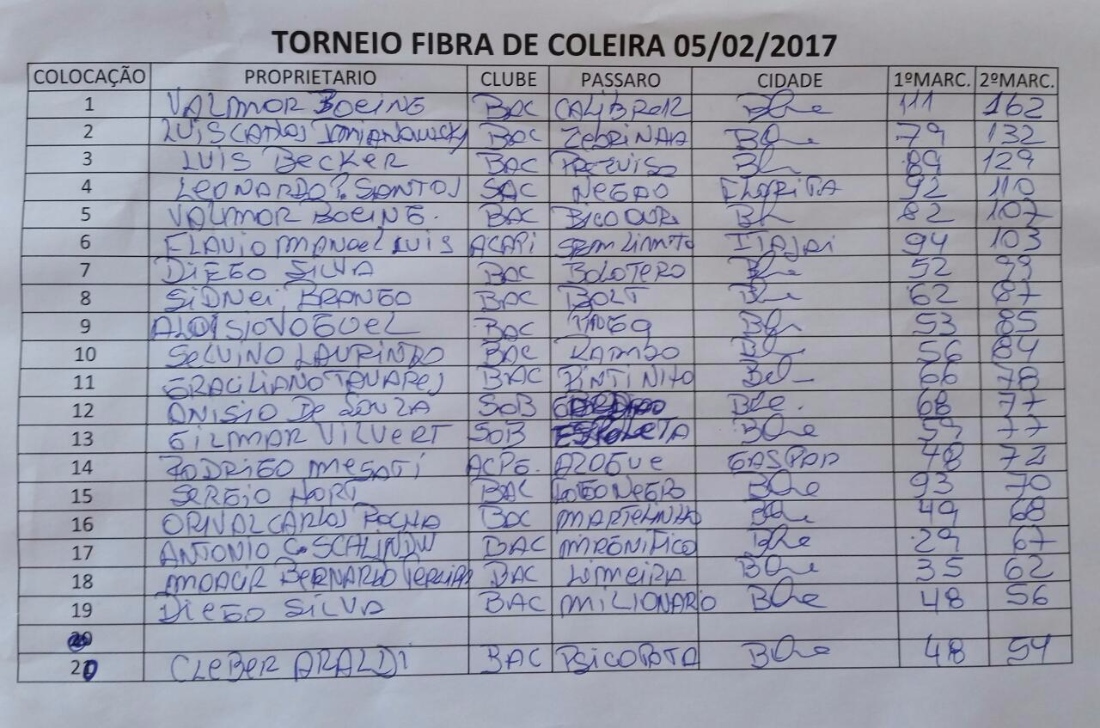 TORNEIO FIBRA DE COLEIRA 05/02/2017
COLOCAÇÃO PROPRIETARIO CLUBE PASSARO CIDADE 1ºMARC. 2ºMARC.
1 VALMOR BOEING BAC CALIBRE12 Bne 111 162
2 LUIS CARLOS BAC ZEBRINHA Bne 79 132
3 LUIS BECKER BAC Bne 89 129
4 LEONARDO P. SANTOS SAC NEGAO FLORITA 92 110
5 VALMOR BOEING. BAC Bne 82 107
6 FLAVIO MANOEL LUIS ACAPI SEM LIMITE ITAJAI 94 103
7 DIEGO SILVA BAC BOLOTERO Bne 52 99
8 SIDNEI BRANGO BAC BOLT Bne 62 87
9 ALOISIO VOGUEL BAC Bne 53 85
10 SELVINO LAURINDO BAC Bne 56 84
11 GRACILIANO TAVARES BAC PINTINHO Bne 66 78
12 ANISIO DE SOUZA SOB Bne. 68 77
13 GILMAR VILVERT SOB ESPOLETA Bne 59 77
14 RODRIGO ACPG. AZOGUE GASPAR 48 72
15 SERGIO BAC LOBO NEGRO Bne 93 70
16 ORIVAL CARLOS ROCHA BAC MARTELINHO Bne 49 68
17 ANTONIO C. BAC MIRENIFICO Bne 29 67
18 MOACIR BERNARDO BAC LIMEIRA Bne 35 62
19 DIEGO SILVA BAC MILIONARIO Bne 48 56
20 CLEBER ARALDI BAC PSICOPOTA Bne 48 54